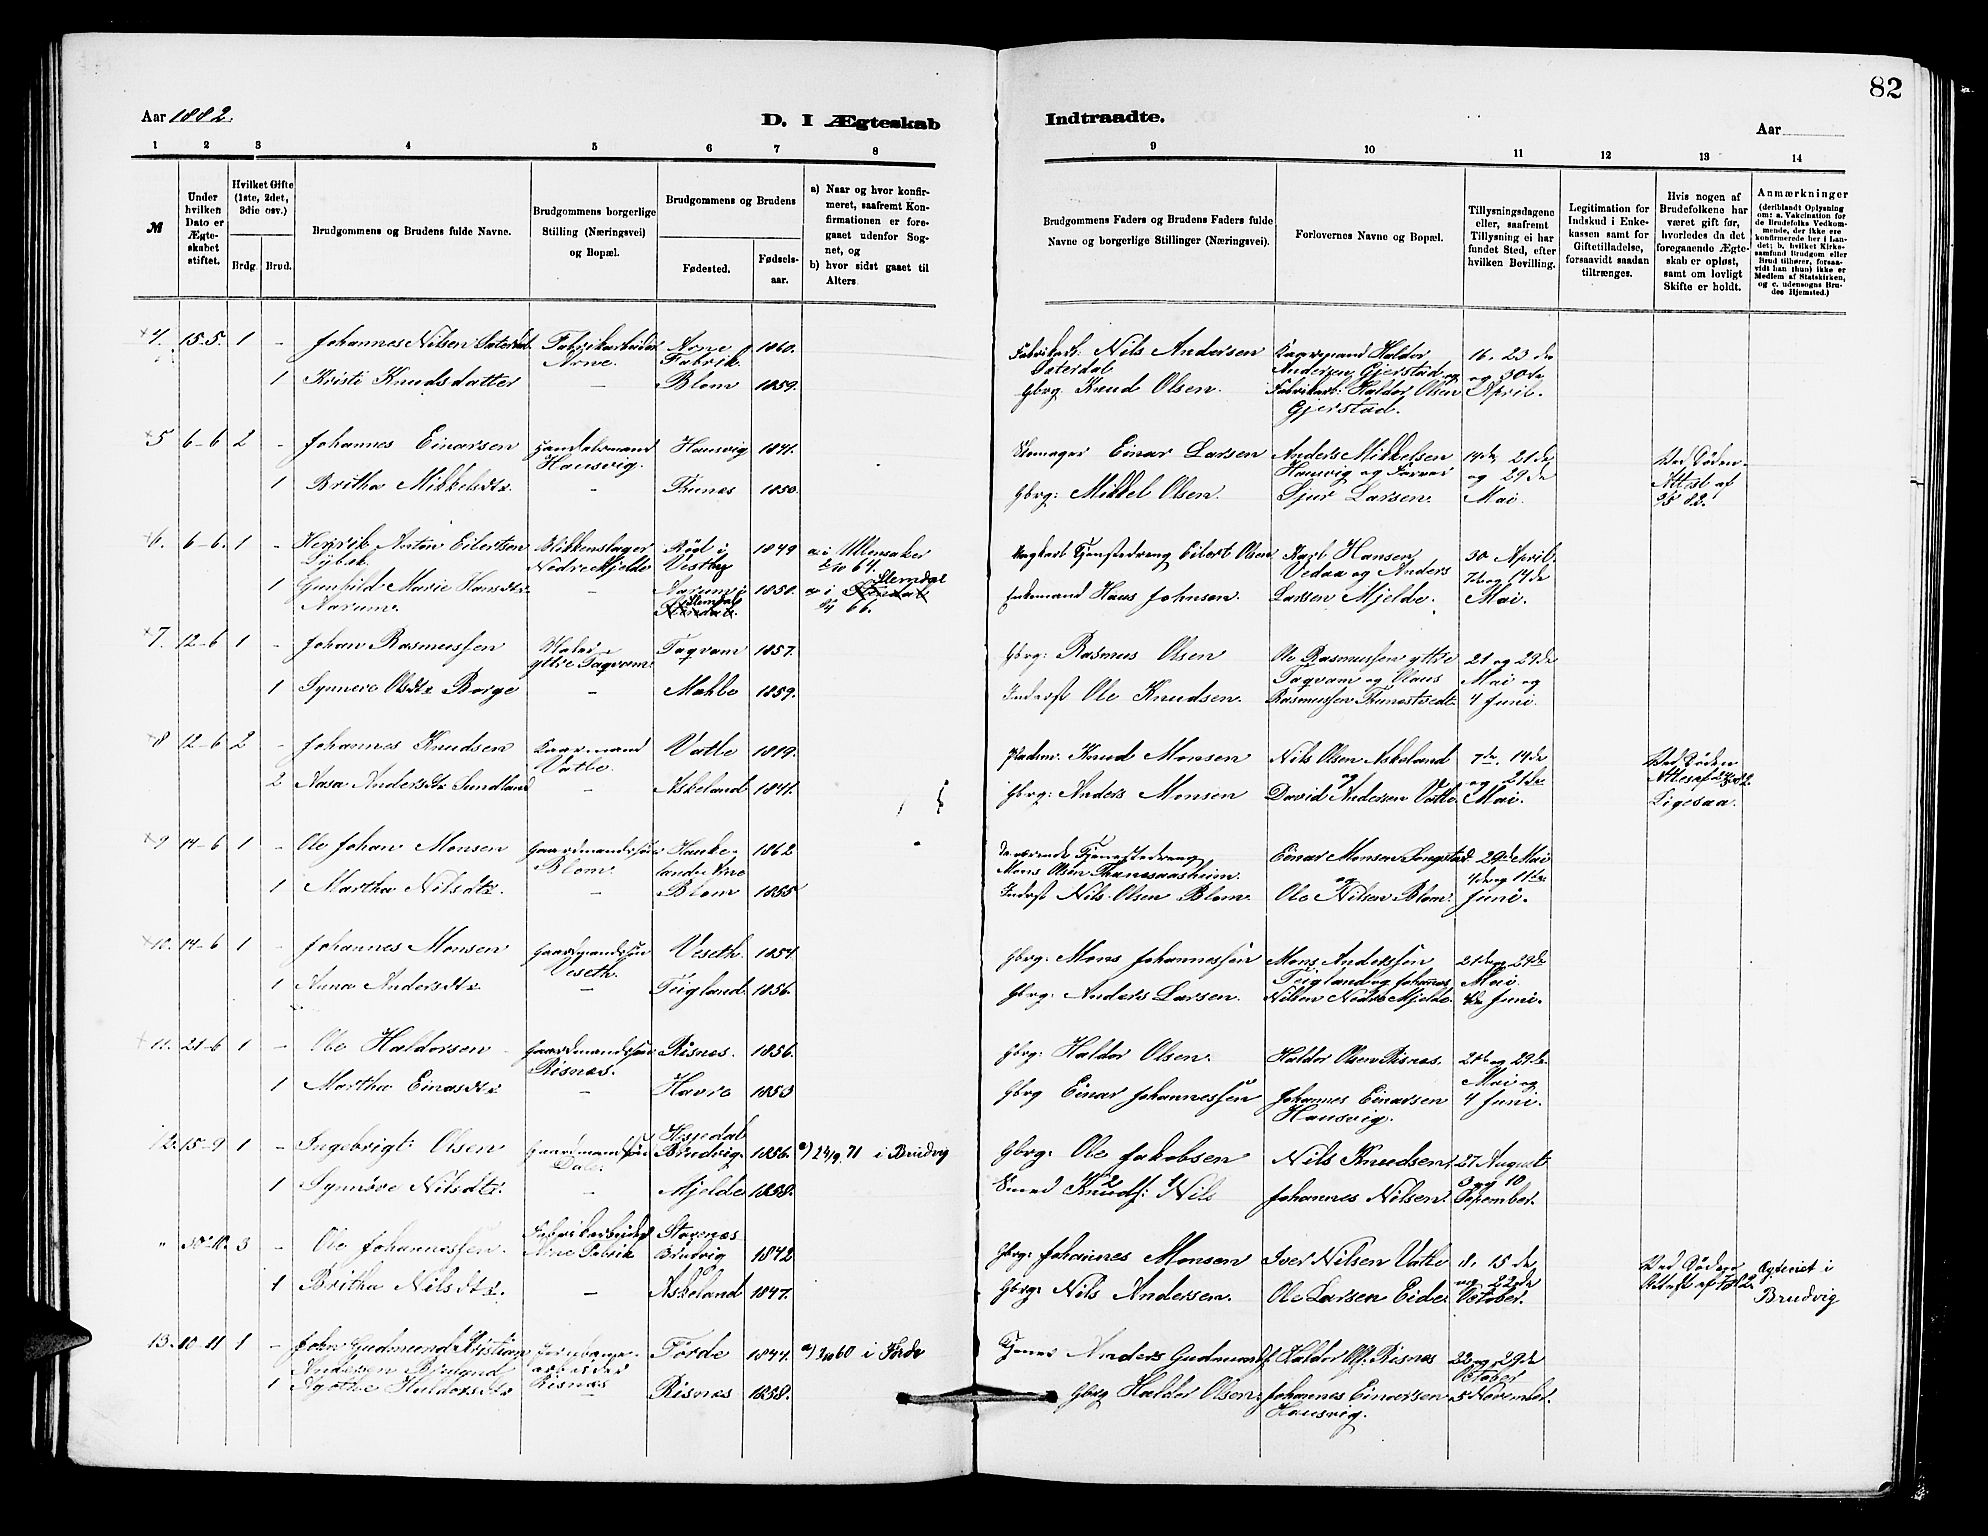 82
Aar 1882.
D. I Ægteskab
Indtraadte.
Aar
1 2 3 4 5 6 7 8
9 10 11 12 13 14
№
Under hvilken Dato er Ægteskabet stiftet.
Hvilket Gifte (1ste, 2det, 3die osv.)
Brdg. Brud.
Brudgommens og Brudens fulde Navne.
Brudgommens borgerlige Stilling (Næringsvei) og Bopæl.
Brudgommens og Brudens
Fødested.
Fødselsaar.
a) Naar og hvor konfirmeret, saafremt Konfirmationen er foregaaet udenfor Sognet, og
b) hvor sidst gaaet til Alters.
Brudgommens Faders og Brudens Faders fulde Navne og borgerlige Stillinger (Næringsvei).
Forlovernes Navne og Bopæl.
Tillysningsdagene eller, saafremt Tillysning ei har fundet Sted, efter hvilken Bevilling.
Legitimation for Indskud i Enkekassen samt for Giftetilladelse, forsaavidt saadan tiltrænges.
Hvis nogen af Brudefolkene har været gift før, hvorledes da det foregaaende Ægteskab er opløst, samt om lovligt Skifte er holdt.
Anmærkninger (deriblandt Oplysning om: a. Vakcination for de Brudefolks Vedkommende, der ikke ere konfirmerede her i Landet; b. hvilket Kirkesamfund Brudgom eller Brud tilhører, forsaavidt han (hun) ikke er Medlem af Statskirken, og c. udensogns Brudes Hjemsted.)
4. 15-5. 1 - Johannes Nilsen Saterdal Fabrikarbeider Arne. Arne Fabrik 1860. Fabrikarb: Nils Andersen Saterdal Kaarmand Haldor Andersen Gjerstad og 16, 23 de og 30 de
1 Kristi Knudsdatter - Blom 1859. Gbrg Knud Olsen. Fabrikarb: Haldor Olsen Gjerstad. April.
5 6-6 2 - Johannes Einarsen Handelsmand Hausvig. Hausvig 1841. Skomager Einar Larsen Anders Mikkelsen Hausvig og Farver 14de, 21 de og 29 de Ved Døden. Attest af
1 Britha Mikkelsdtr. - Thunes 1850. Gbrg: Mikkel Olsen. Sjur Larsen. Mai
6. 6-6. 1 - Henrik Anton Eibertsen Blikkenslager Nedre Mjelde Rød i Vestby 1849 a i Ullensaker 64. Tjenestedreng Eibert Olsen Karl Hansen Vedaa og Anders 30 April,
1 Gunhild Marie Hansdtr. Aarum. - Aarum i Slemdal 1850. a i Slemdal 66. Enkemand Hans Johnsen. Larsen Mjelde. 7de og 14 de Mai.
7. 12-6 1 - Johan Rasmussen Maler ytre Tagvam. Tagvam 1857. Gbrg: Rasmus Olsen Ole Rasmussen ytre Tagvam og Olaus 21 og 29 de Mai og
1 Synneve Olsdtr Borge - Mahle 1859. Inderst Ole Knudsen. Rasmussen Thunestvedt. 4 Juni.
8 12-6 2 - Johannes Knudsen Kaarmand Vatle. Vatle 1819. Pladsm. Knud Monsen Nils Olsen Askeland og 7de, 14 de og 21 de Ved Døden
2 Aasa Andersdtr Sundland - Askeland 1841. Gbrg: Anders Monsen David Andersen Vatle. Mai. Ligesaa.
9 14-6 1 - Ole Johan Monsen Gaardmandssøn Blom. Haukelandr Arne 1862 Tjenestedreng Mons Olsen Einar Monsen Songstad og 29 de Mai 4de og 11te
1 Martha Nilsdtr. - Blom 1855 Inderst Nils Olsen Blom. Ole Nilsen Blom. Juni.
10. 14-6 1 - Johannes Monsen Gaardmandssøn Veseth. Veseth. 1854 Gbrg: Mons Johannessen Mons Anderssen Tugland og Johannes 21de og 29de Mai
1 Anna Andersdtr. - Tugland 1856. Gbrg: Anders Larsen. Nilsen Nedre Mjelde. 4de Juni.
11. 21-6 1 - Ole Haldorsen Gaardmandssøn Risnes. Risnes. 1856. Gbrg: Haldor Olsen. Haldor Olsen Risnes. 21de og 29de Mai og
1 Martha Einarsdtr - Havre 1853 Gbrg Einar Johannessen Johannes Einarsen Hausvig. 4 Juni.
12. 15-9 1 - Ingebrigt Olsen Gaardmandssøn Dale. Hesjedal Brudvig. 1856. a) 24/9 71 i Brudvig Gbrg: Ole Jakobsen Nils Knudsen. 27 August 3 og 10
1 Synnøve Nilsdtr. - Mjelde 1858. Smed Knuds: Nils Johannes Nilsen. September.
" 30-10. 3 - Ole Johannessen. Fabrikarbeider Arne Fabrik Stavenes Brudvig 1842 Gbrg: Johannes Monsen Iver Nilsen Vatle 8, 15 de og 22de Ved Døden Attest af Ægteviet i Brudvig
1 Britha Nilsdtr. - Askeland 1847. Gbrg: Nils Andersen. Ole Larsen Eide October.
13. 10-11 1 - John Gudmund Kristian Andersen Jernbanearbeider Risnæs Førde 1844. a) 60 i Førde Tjener Anders Gudmunds. Haldor Ols. Risnæs 22 og 29 de October
1 Agathe Haldorsdtr - Risnæs 1858. Gbrg Haldor Olsen. Johannes Einarsen Hausvig. 5 November.